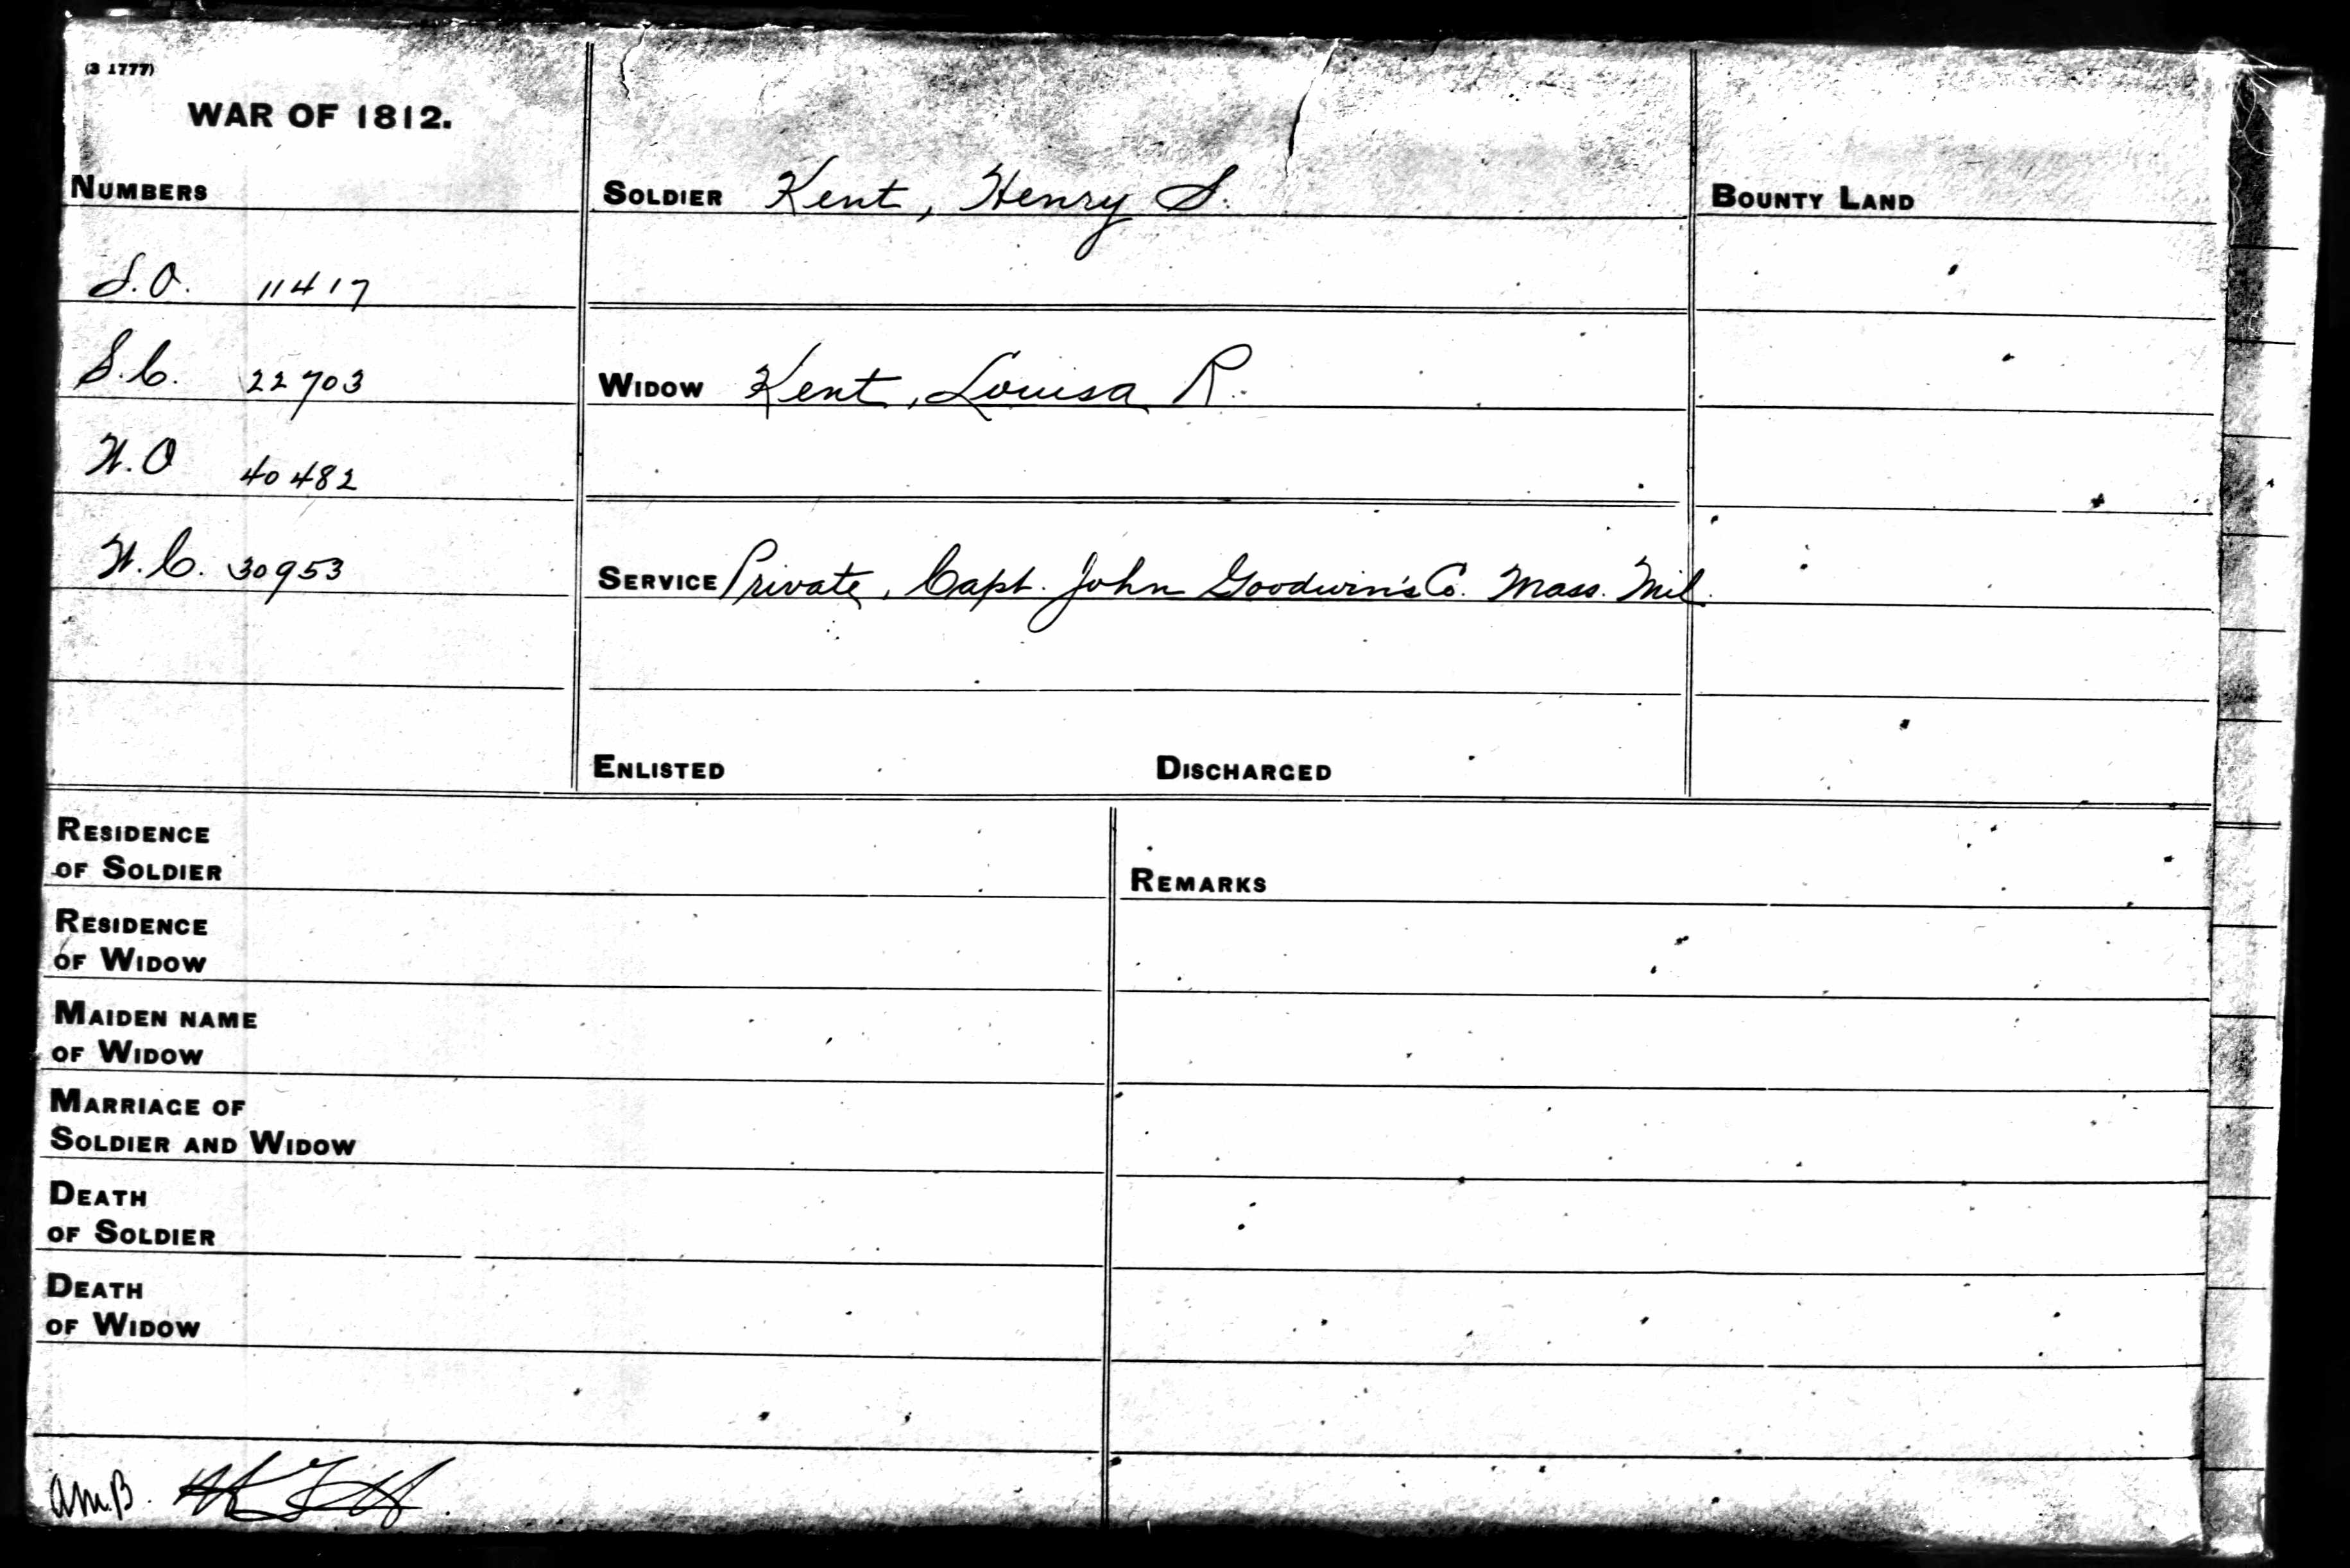 (3 1777)
WAR OF 1812.
NUMBERS
S.O. 11417
S.C. 22703
W.O 40482
W.C. 30953
SOLDIER Kent, Henry S.
WIDOW Kent, Louisa R.
SERVICE Private, Capt. John Goodwin's Co. Mass. Mil.
ENLISTED DISCHARGED
BOUNTY LAND
RESIDENCE
OF SOLDIER
RESIDENCE
OF WIDOW
MAIDEN NAME
OF WIDOW
MARRIAGE OF
SOLDIER AND WIDOW
DEATH
OF SOLDIER
DEATH
OF WIDOW
REMARKS
a.m.B.